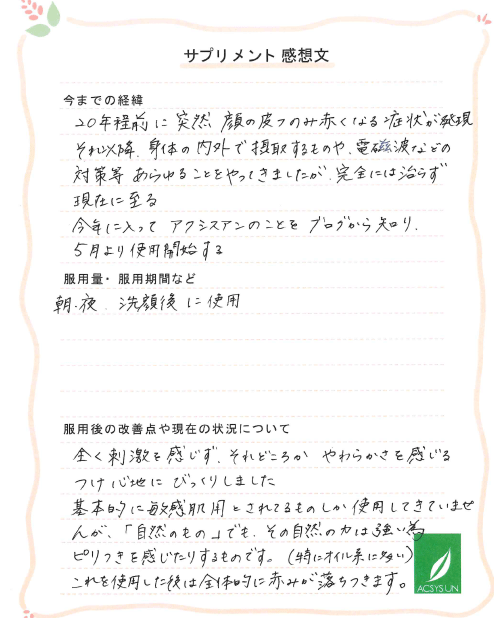 サプリメント 感想文
今までの経緯
20年程前に突然 顔の皮フのみ赤くなる症状が発現
それ以降、身体の内外で摂取するものや、電磁波などの
対策等 あらゆることをやってきましたが、完全には治らず
現在に至る
今年に入って アクシスアンのことを ブログから知り、
5月より使用開始する
服用量・服用期間など
朝・夜、洗顔後に使用
服用後の改善点や現在の状況について
全く刺激を感じず、それどころか やわらかさを感じる
つけ心地に びっくりしました
基本的に敏感肌用とされてるものしか使用してきていませ
んが、「自然のもの」でも、その自然の力は強い為
ピリつきを感じたりするものです。(特にオイル系に多い)
これを使用した後は全体的に赤みが落ちつきます。
ACSYSUN